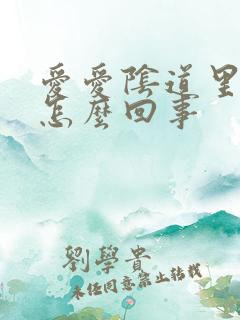 愛愛陰道里
怎麼回事
劉學貴
未经同意禁止转载